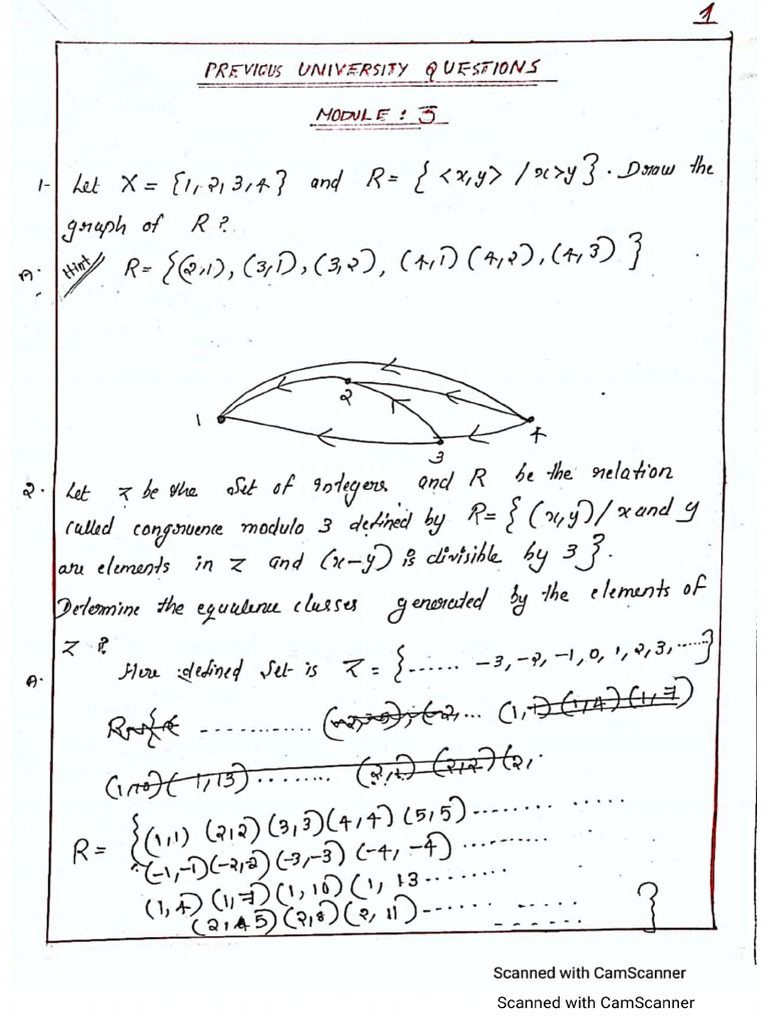 1
PREVIOUS UNIVERSITY QUESTIONS
MODULE : 3
1- Let X = {1, 2, 3, 4} and R = { <x,y> / x>y }. Draw the
graph of R ?
A. Hint R = {(2,1), (3,1), (3,2), (4,1) (4,2), (4,3) }
1 2 3 4
2. Let z be the Set of integers and R be the relation
called congruence modulo 3 defined by R = { (x,y) / x and y
are elements in z and (x-y) is divisible by 3 }.
Determine the equulence classes generated by the elements of
z ?
A. Here defined Set is Z = {...... -3, -2, -1, 0, 1, 2, 3, .....}
(1, (1,4) (1,7)
(1,10) (1,13) ........ (2, (2,2) (2,
R = {(1,1) (2,2) (3,3) (4,4) (5,5) ........ .....
(-1,-1) (-2,-2) (-3,-3) (-4,-4) ........
(1,4) (1,7) (1,10) (1,13 ........
(2, 5) (2,8) (2,11) ...... ...... }
Scanned with CamScanner
Scanned with CamScanner